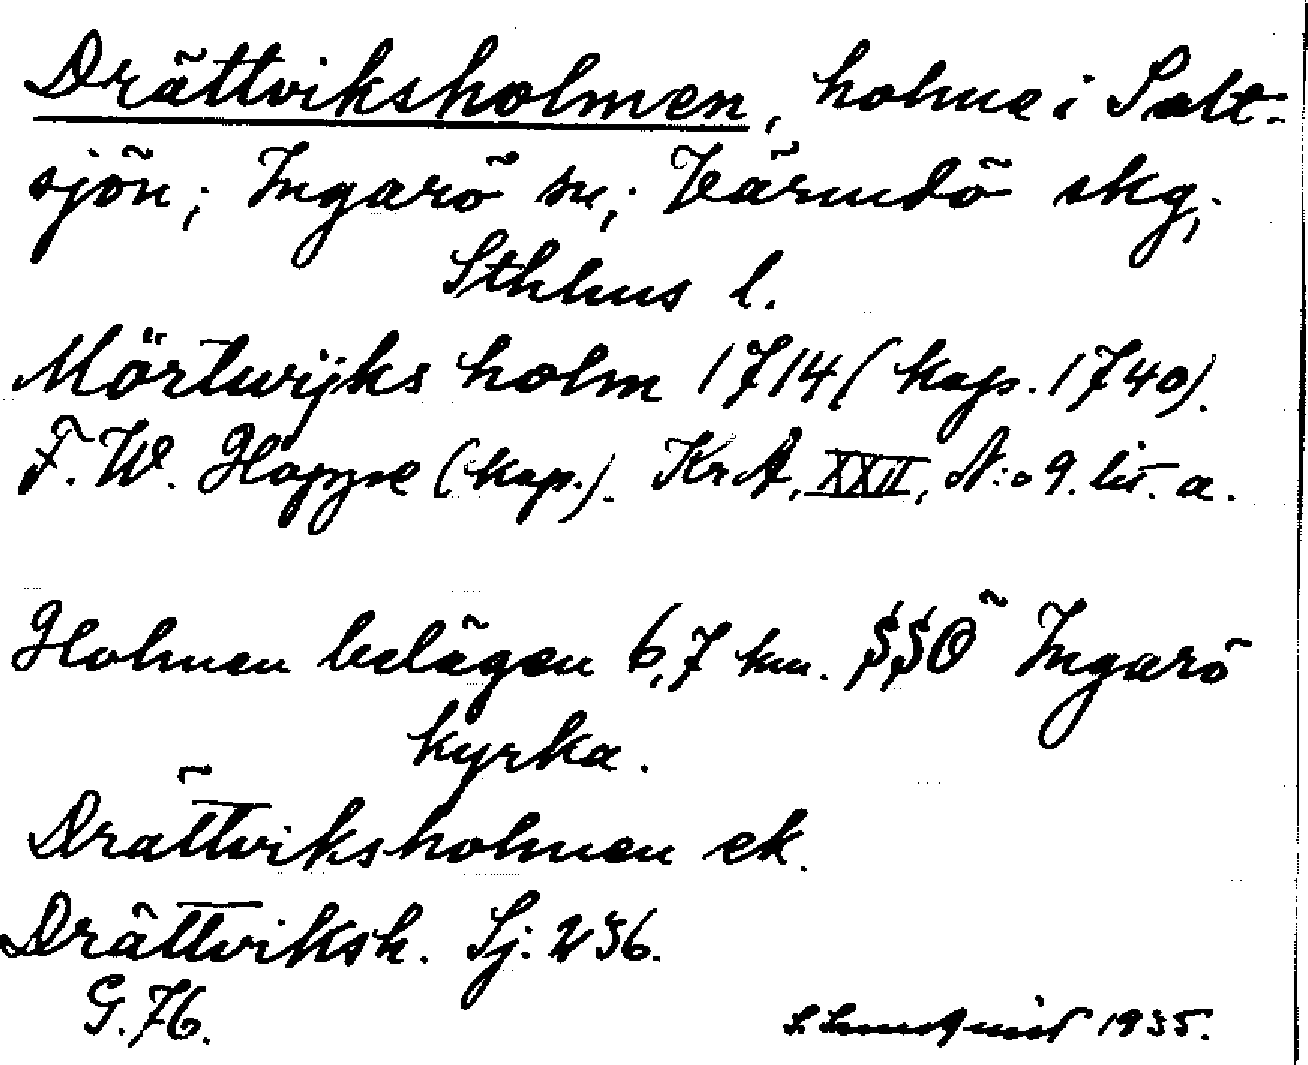 Drättviksholmen, holme i Salt-
sjön; Ingarö sn; Värmdö skg;
Sthlms l.
Mörtwijks holm 1714 (kop. 1740).
F. W. Hoppe (kop.). KrA, XXII, N:o 9. lit. a.
Holmen belägen 6,7 km. SSO Ingarö
kyrka.
Drättviksholmen ek.
Drättviksh. Sj. 236.
G. 76.
1935.